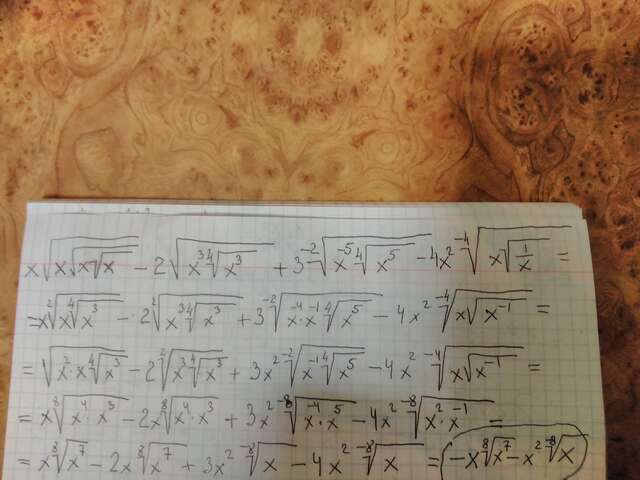 x√(x√(x√x)) - 2√(x³ ⁴√(x³)) + 3 ⁻²√(x⁻⁵ ⁴√(x⁵)) - 4x² ⁻⁴√(x√(1/x)) =
= x ²√(x ⁴√(x³)) - 2 ²√(x³ ⁴√(x³)) + 3 ⁻²√(x⁻⁴·x⁻¹ ⁴√(x⁵)) - 4x² ⁻⁴√(x√(x⁻¹)) =
= √(x²·x ⁴√(x³)) - 2 ²√(x³ ⁴√(x³)) + 3x² ⁻²√(x⁻¹ ⁴√(x⁵)) - 4x² ⁻⁴√(x√(x⁻¹)) =
= x ⁸√(x⁴·x³) - 2x ⁸√(x⁴·x³) + 3x² ⁻⁸√(x⁻⁴·x⁵) - 4x² ⁻⁸√(x²·x⁻¹) =
= x ⁸√(x⁷) - 2x ⁸√(x⁷) + 3x² ⁻⁸√x - 4x² ⁻⁸√x = -x ⁸√(x⁷) - x² ⁻⁸√x